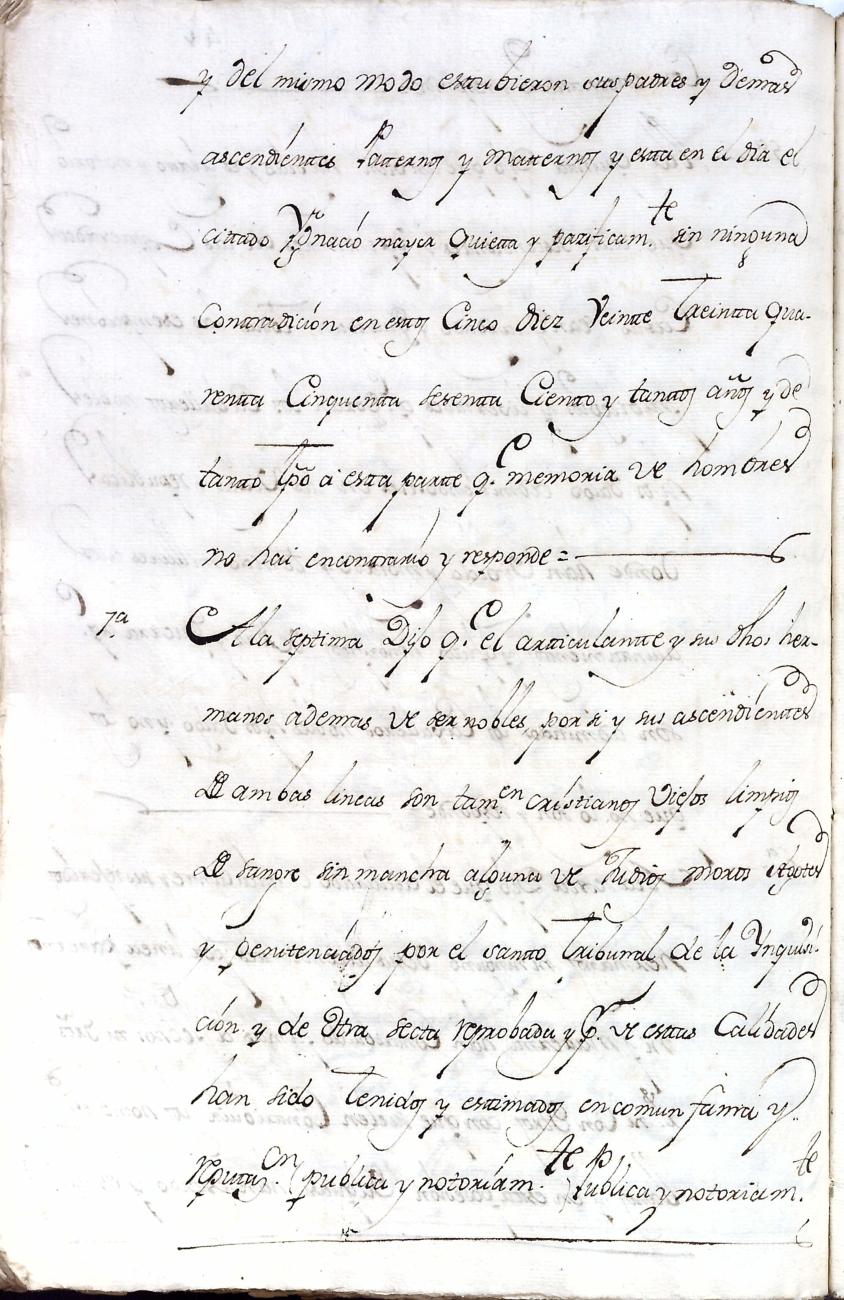 y del mismo modo estubieron sus padres y demas
ascendientes Paternos y Maternos y esta en el dia el
cittado Ygnacio mayor quieta y pazificam.te sin ninguna
Contradición en estos Cinco diez Veinte Treinta qua-
renta Cinquenta sesenta Ciento y tantos años y de
tanto tpõ a esta parte q.e memoria de hombres
no hai encontrario y responde =
7.a A la septima Dijo q.e el articulante y sus dhos her-
manos ademas de ser nobles por si y sus ascendientes
De ambas lineas son tam.en cristianos Viejos limpios
De sangre sin mancha alguna de Judios moros Agotes
y penitenciados por el santo Tribunal de la Ynquisi-
ción y de Otra secta reprobada y p.r de estas Calidades
han sido Tenidos y estimados en comun fama y
reputa.on publica y notoriam.te Publica y notoriam.te